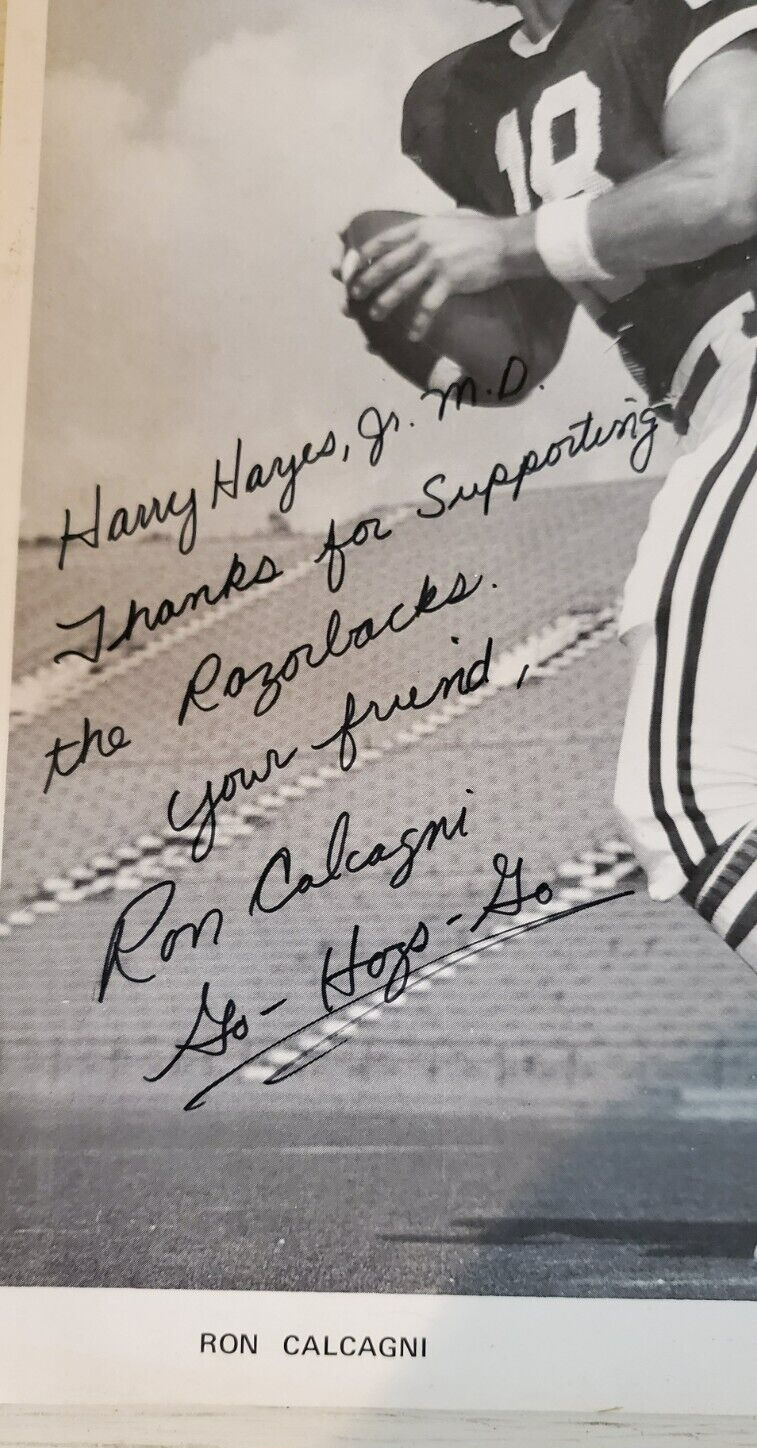 18
Harry Hayes, Jr. M.D.
Thanks for Supporting
the Razorbacks.
your friend,
Ron Calcagni
Go - Hogs - Go
RON CALCAGNI